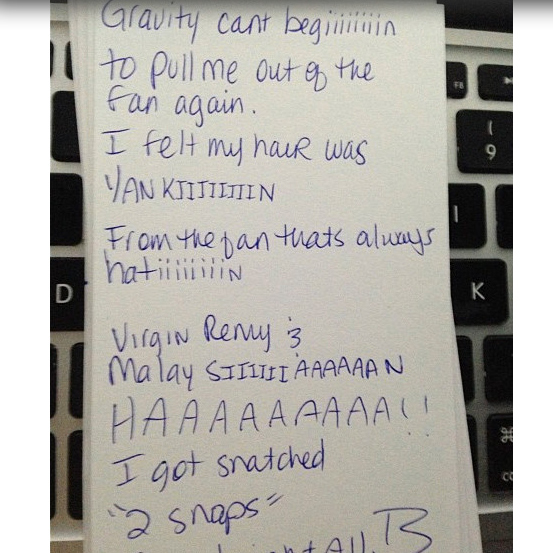 Gravity cant begiiiiiiiin
to pull me out of the
fan again.
I felt my haiR was
YANKIIIIIIIIN
From the fan thats always
hatiiiiiiiiiN
Virgin Remy &
Malay SIIIIIIAAAAAAN
HAAAAAAAAA!!
I got snatched
"2 snaps"
B
F8
( 9
I
D
K
⌘